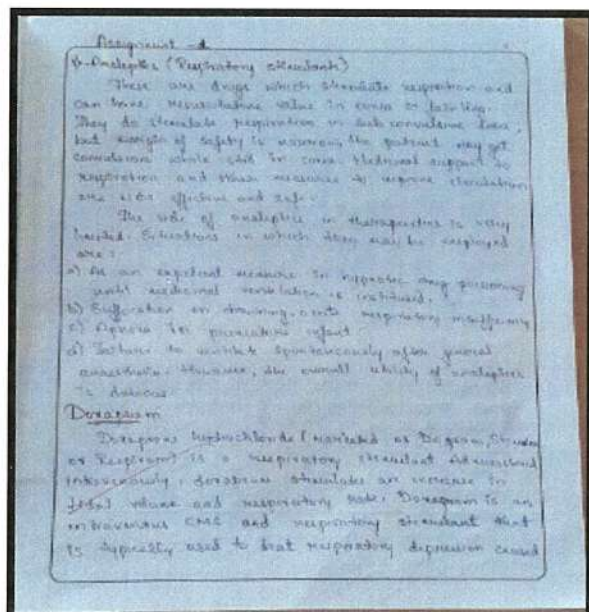 Assignment - 1
Analeptics (Respiratory stimulants)
These are drugs which stimulate respiration and
can have resuscitative value in coma or fainting.
They do stimulate respiration in sub convulsive dose,
but margin of safety is narrow, the patient may get
convulsion while still in coma. Mechanical support to
respiration and other measures to improve circulation
are more effective and safe.
The role of analeptics in therapeutics is very
limited. Situations in which they may be employed
are :
a) As an expedient measure in hypnotic drug poisoning
until mechanical ventilation is instituted.
b) Suffocation on drowning, acute respiratory insufficiency
c) Apnoea in premature infant
d) Failure to ventilate spontaneously after general
anaesthesia. However, the overall utility of analeptics
is dubious.
Doxapram
Doxapram hydrochloride (marketed as Dopram,
or Respiram) is a respiratory stimulant. Administered
intravenously, doxapram stimulates an increase in
tidal volume and respiratory rate. Doxapram is an
intravenous CNS and respiratory stimulant that
is typically used to treat respiratory depression caused